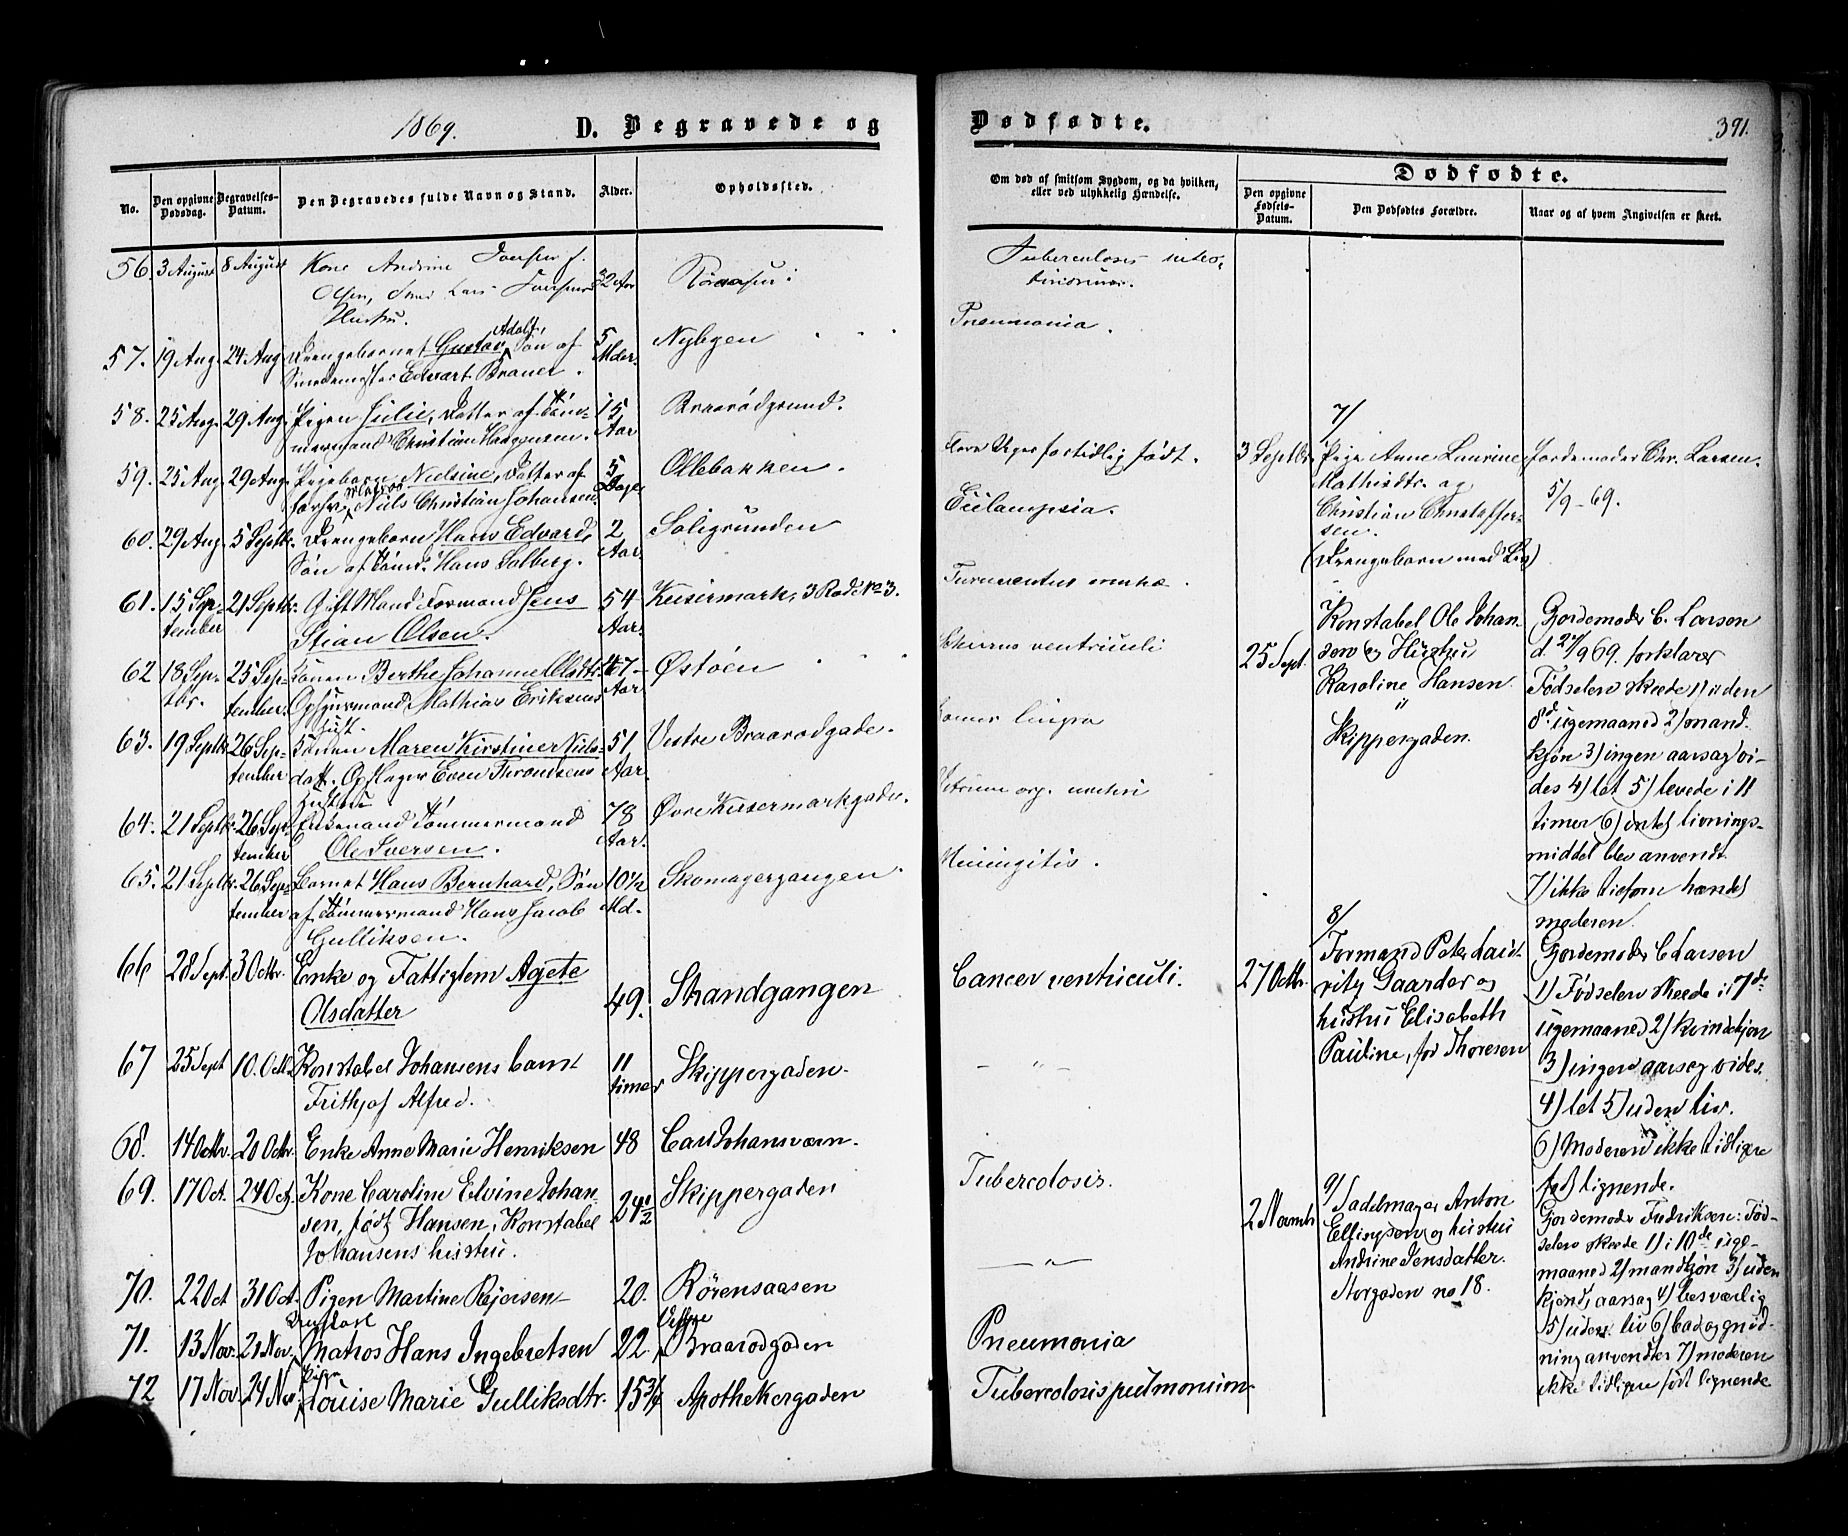 1869.
D. Begravede og
Dødfødte.
391.
No.
Den opgivne Dødsdag.
Begravelses-Datum.
Den Begravedes fulde Navn og Stand.
Alder.
Opholdssted.
Om død af smitsom Sygdom, og da hvilken,
eller ved ulykkelig Hændelse.
Dødfødte.
Den opgivne Fødsels-Datum.
Den Dødfødtes Forældre.
Naar og af hvem Angivelsen er skeet.
56. 3 August 8 August Kone Andrine Iversen f. 32 Aar
Olsen, Lars Iversens
Hustru.
57. 19 Aug. 24 Aug. Drengebarnet Gustav Adolf, Søn af 5 Mdr. Nybyen Pneumonia.
Edvart Brauer.
58. 25 Aug. 29 Aug. Pigen Julie, Datter af Töm- 15 Aar Braarödgrund.
mermand Christian Haagensen.
59. 25 Aug. 29 Aug. Pigebarn Nielsine, Datter af 5 Dage Öllebakken. Flere Uger for tidlig født.
Matros Niels Christian Johansen.
60. 29 Aug. 5 Septbr. Drengebarn Hans Edvard, 2 Aar. Eclampsia.
Søn af Tömd. Hans Solberg.
61. 15 September 21 Septbr. Gift Mand Formand Jens 54 Aar. 3 Rode No 3.
Stian Olsen.
62 18 Sep- 25 September Konen Berthe Johanne Olsdtr. 67 Aar. Østøen ventriculi
Mathias Eriksens
Hust.
63. 19 Septbr. 26 September Konen Maren Kirstine Niels- 51 Aar. Vestre Braarødgade.
datt. Opflager Even Throndsens
Hustru
64. 21 Septbr. 26 September Enkemand Tömmermand 78 Aar. Øvre
Ole Iversen.
65. 21 Septbr. 26 September Barnet Hans Bernhard, Søn 10½ Md. Skomagergangen. Meningitis.
af Tömmermand Hans Jacob
Gulliksen.
66 28 Sept. 3 Octbr. Enke og Fattiglem Agete 49. Strandgangen Cancer ventriculi.
Olsdatter
67 25 Sept 10. Oct. Konstabel Johansens barn 11 timer Skippergaden. — " —
Frithjof Alfred.
68. 14 Octbr. 20 Octbr. Enke Anne Marie Henriksen 48 Carl Johansværn.
69. 17 Oct. 24 Oct. Kone Caroline Elvine Johan- 24½ Skippergaden Tuberculosis.
sen, født Hansen, Konstabel
Johansens hustru.
70. 22 Oct 31 Oct. Pigen Martine Rejersen 20. Rörensaasen — " —
71. 13 Nov. 21 Nov. Matros Hans Ingebretsen 22. Braarødgaden Pneumonia
72 17 Nov 24 Nov Pige Louise Marie Gulliksdtr. 15 Apothekergaden Tuberculosis pulmonum.
7/
3 Septbr. Pige Anne Laurine
Mathisdtr. og
Christian Christoffer-
sen.
(Drengebarn med Liv)
Jordemoder Chr. Larsen.
5/9 - 69.
25 Sept.
Konstabel Ole Johan-
sen og Hustru
Karoline Hansen.
"
Skippergaden.
Gjordemoder C. Larsen
d 27/9 69. forklarer
Fødselen skeede 1) i den
8de ugemaaned 2) mand-
kjön 3) ingen aarsag vi-
des 4) let 5) levede i 11
timer 6) intet livnings-
middel blev anvendt
7) ikke tidsom hændet
moderen.
8/
27 Octbr.
Formand Peter Laur-
ritz Gaarder og
hustru Elisabeth
Pauline, fød Thoresen
Gjordemoder C Larsen
1) Fødselen skeede i 7de
ugemaaned 2) kvindekjøn
3) ingen aarsag vides.
4) let 5) uden liv.
6) Moderen ikke tidligere
født lignende.
9/
2 Novmbr
Sadelmager Anton
Ellingsen og hustru
Andrine Jensdatter.
Storgaden no 18.
Gjordemoder Fredriksen: Fød-
selen skede 1) i 10de uge-
maaned 2) mandkjön 3) uden
kjendt aarsag 4) besværlig
5) uden liv 6) bad og gnid-
ning anvendtes 7) moderen
ikke tidligere født lignende